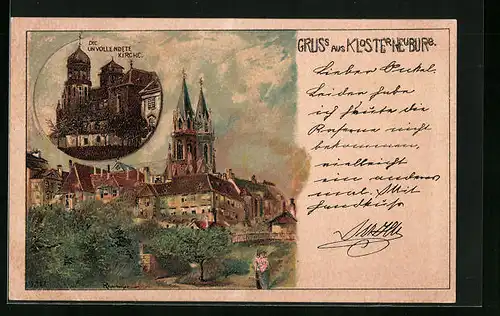 DIE
UNVOLLENDETE
KIRCHE.
GRUSS AUS KLOSTERNEUBURG.
Lieber Onkel.
Leider habe
ich heute die
Kaserne nicht
bekommen,
vielleicht
ein anderes
mal. Mit
Handkuss